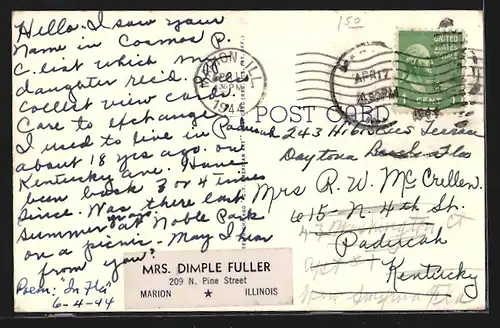 Hello. I saw your
name in Cosmos P.
C. list which my
daughter rec'd. I
collect view cards.
Care to exchange?
I used to live in Paducah
about 18 yrs ago. on
Kentucky Ave. Have
been back 3 or 4 times
since. Was there last
Summer at Noble Park
on a picnic. May I hear
from you?
Poem: "In Fla"
6-4-44
MRS. DIMPLE FULLER
209 N. Pine Street
MARION ★ ILLINOIS
150
MARION, ILL.
1944
APR 17
PM
UNITED
STATES
1 CENT 1
POST CARD
243 Hibiscus Terrace
Daytona Beach Fla
Mrs R. W. McCrellen.
615- N. 4th St.
Paducah
Kentucky
New Smyrna Fla